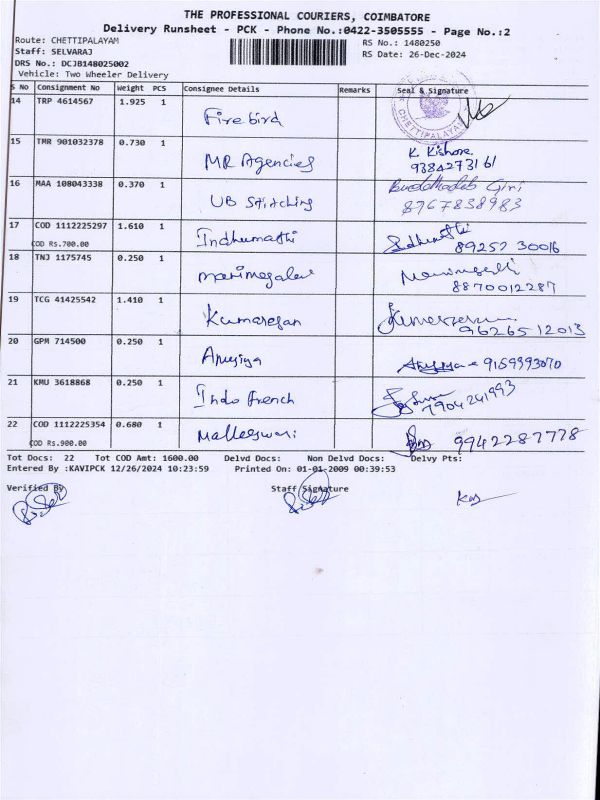 THE PROFESSIONAL COURIERS, COIMBATORE
Delivery Runsheet - PCK - Phone No.:0422-3505555 - Page No.:2
Route: CHETTIPALAYAM RS No.: 1480250
Staff: SELVARAJ RS Date: 26-Dec-2024
DRS No.: DCJB148025002
Vehicle: Two Wheeler Delivery
S No Consignment No Weight PCS Consignee Details Remarks Seal & Signature
14 TRP 4614567 1.925 1 Firebird CHETTIPALAYAM
15 TMR 901032378 0.730 1 MR Agencies K. Kishore
9384273161
16 MAA 108043338 0.370 1 UB Stitching Buddhadeb Giri
8767838983
17 COD 1112225297 1.610 1 Indhumathi
COD Rs.700.00 89252 30016
18 TNJ 1175745 0.250 1 manimegalai
8870012287
19 TCG 41425542 1.410 1 Kumaresan
9626512013
20 GPM 714500 0.250 1 Anusiya 9159393070
21 KMU 3618868 0.250 1 Indo French
7904241993
22 COD 1112225354 0.680 1 Malleeswari 9942287778
COD Rs.900.00
Tot Docs: 22 Tot COD Amt: 1600.00 Delvd Docs: Non Delvd Docs: Delvy Pts:
Entered By :KAVIPCK 12/26/2024 10:23:59 Printed On: 01-01-2009 00:39:53
Verified By Staff Signature